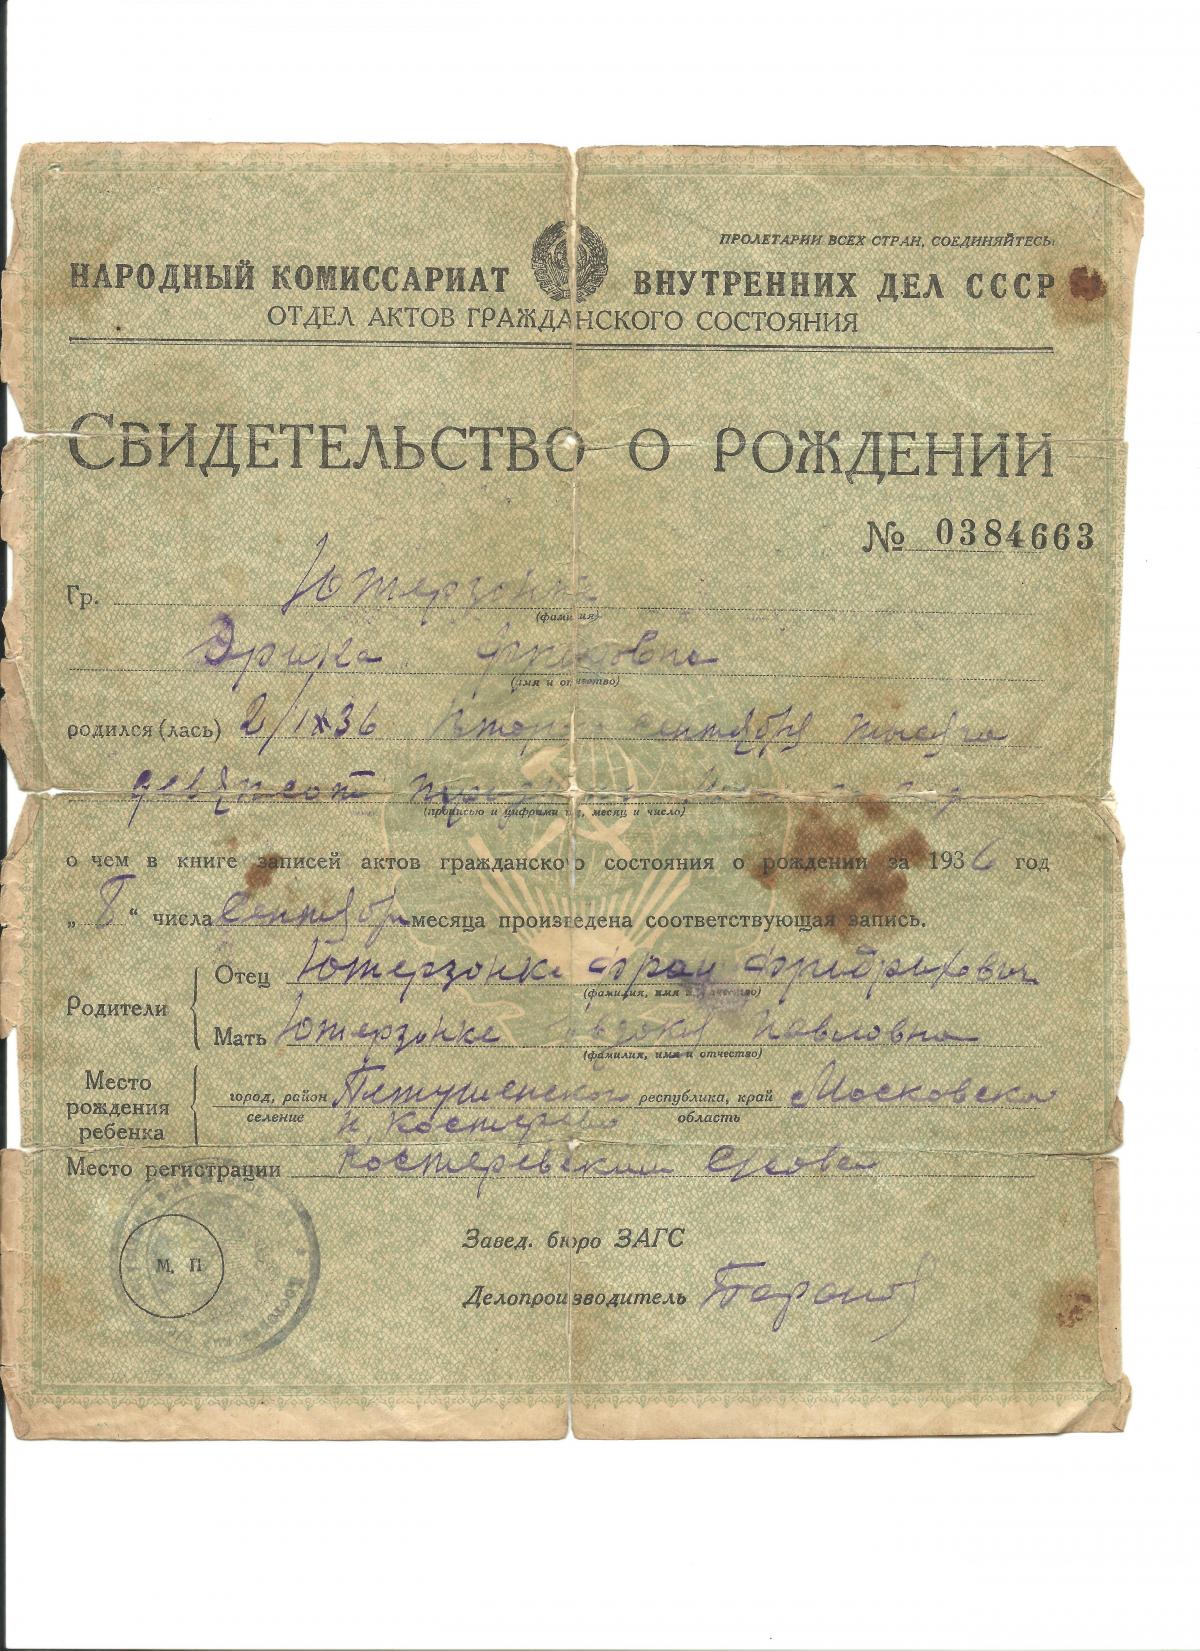 ПРОЛЕТАРИИ ВСЕХ СТРАН, СОЕДИНЯЙТЕСЬ!
НАРОДНЫЙ КОМИССАРИАТ ВНУТРЕННИХ ДЕЛ СССР
ОТДЕЛ АКТОВ ГРАЖДАНСКОГО СОСТОЯНИЯ
СВИДЕТЕЛЬСТВО О РОЖДЕНИИ
№ 0384663
Гр. Ютерзонке
(фамилия)
Эрика
(имя и отчество)
родился (лась) 2/IX 36 Второго сентября тысяча
девятсот тридцать
(прописью и цифрами год, месяц и число)
о чем в книге записей актов гражданского состояния о рождении за 1936 год
„ 8 “ числа Сентября месяца произведена соответствующая запись.
Родители
Отец Ютерзонке Фран Фридрихович
(фамилия, имя и отчество)
Мать Ютерзонке Павловна
(фамилия, имя и отчество)
Место рождения ребенка
город, район Петушенского республика, край Московская
селение п. Костерево область
Место регистрации Костеревским
М. П.
Завед. бюро ЗАГС
Делопроизводитель